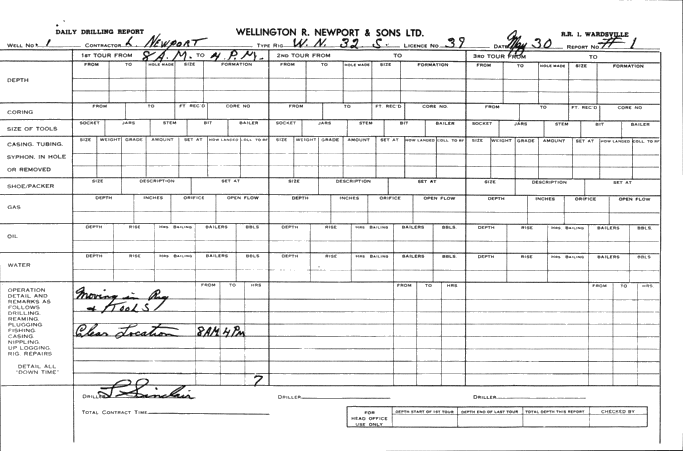 DAILY DRILLING REPORT WELLINGTON R. NEWPORT & SONS LTD. R.R. 1. WARDSVILLE
WELL NO. 1 CONTRACTOR L. NEWPORT TYPE RIG W. N. 32 S. LICENCE NO 39 DATE May 30 REPORT NO # 1
1ST TOUR FROM 8 A.M. TO 4 P.M. 2ND TOUR FROM TO 3RD TOUR FROM TO
FROM TO HOLE MADE SIZE FORMATION FROM TO HOLE MADE SIZE FORMATION FROM TO HOLE MADE SIZE FORMATION
DEPTH
FROM TO FT. REC'D CORE NO FROM TO FT. REC'D CORE NO. FROM TO FT. REC'D CORE NO
CORING
SOCKET JARS STEM BIT BAILER SOCKET JARS STEM BIT BAILER SOCKET JARS STEM BIT BAILER
SIZE OF TOOLS
CASING. TUBING. SIZE WEIGHT GRADE AMOUNT SET AT HOW LANDED COLL. TO RF SIZE WEIGHT GRADE AMOUNT SET AT HOW LANDED COLL. TO RF SIZE WEIGHT GRADE AMOUNT SET AT HOW LANDED COLL. TO RF
SYPHON. IN HOLE
OR REMOVED
SIZE DESCRIPTION SET AT SIZE DESCRIPTION SET AT SIZE DESCRIPTION SET AT
SHOE/PACKER
DEPTH INCHES ORIFICE OPEN FLOW DEPTH INCHES ORIFICE OPEN FLOW DEPTH INCHES ORIFICE OPEN FLOW
GAS
DEPTH RISE HRS BAILING BAILERS BBLS. DEPTH RISE HRS BAILING BAILERS BBLS. DEPTH RISE HRS BAILING BAILERS BBLS.
OIL
DEPTH RISE HRS BAILING BAILERS BBLS DEPTH RISE HRS BAILING BAILERS BBLS. DEPTH RISE HRS BAILING BAILERS BBLS.
WATER
FROM TO HRS FROM TO HRS FROM TO HRS.
OPERATION
DETAIL AND
REMARKS AS
FOLLOWS
DRILLING.
REAMING.
PLUGGING
FISHING.
CASING
NIPPLING.
UP LOGGING.
RIG. REPAIRS
DETAIL ALL
"DOWN TIME"
Moving in Rig
& Tools
Clear Location 8 AM 4 PM
7
DRILLER Sinclair DRILLER DRILLER
TOTAL CONTRACT TIME FOR HEAD OFFICE USE ONLY DEPTH START OF 1ST TOUR DEPTH END OF LAST TOUR TOTAL DEPTH THIS REPORT CHECKED BY